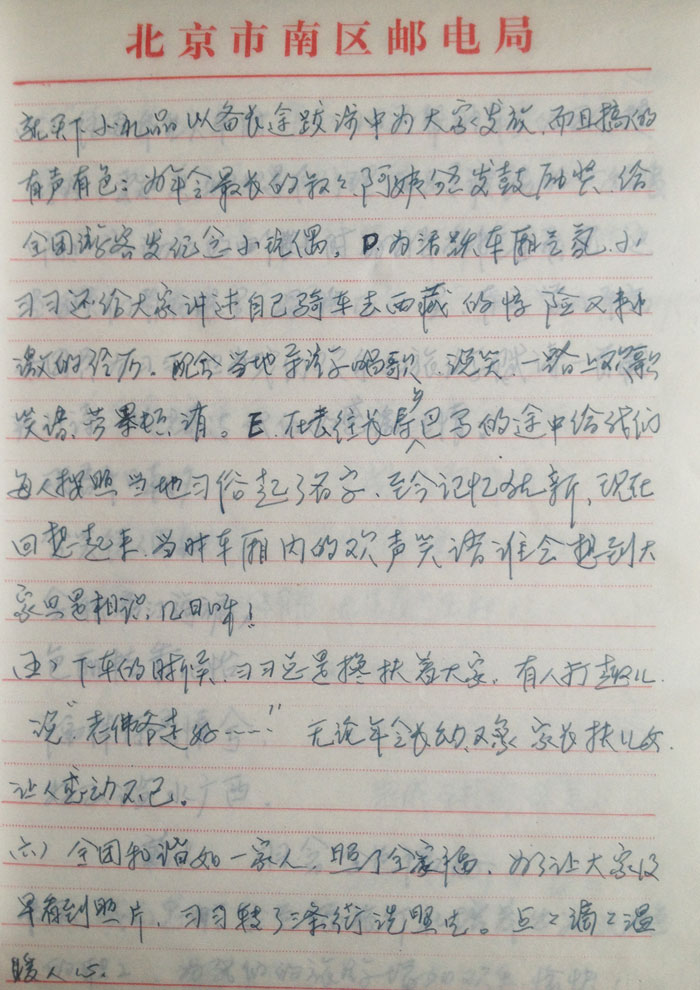 北京市南区邮电局
就买下小礼品以备长途跋涉中为大家发放,而且搞的
有声有色:为年令最长的叔々阿姨 发鼓励奖 给
全团游客发纪念小玩偶。D.为活跃车厢气氛、小
习习还给大家讲述自己骑车去西藏的惊险又刺
激的经历。配合当地导游学唱歌、说笑一路上欢歌
笑语、劳累顿消。E.在去往长寿乡巴马的途中给我们
每人按照当地习俗起了名字、至今记忆犹新、现在
回想起来、当时车厢内的欢声笑语谁会想到大
家只是相识几日呀!
(五)下车的时候、习习总是搀扶着大家。有人打趣儿
说“老佛爷走好……”无论年令长幼、又象家长扶儿女
让人感动不已。
(六)全团和谐如一家人、照了全家福、为了让大家及
早看到照片,习习转了三条街洗照片。点々滴々温
暖人心